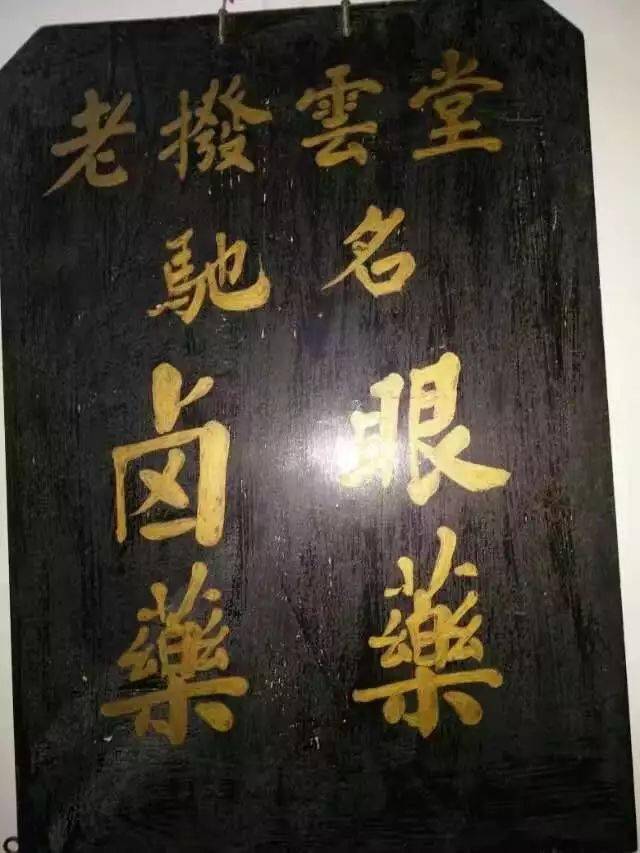 老撥雲堂
馳名
卤藥
眼藥